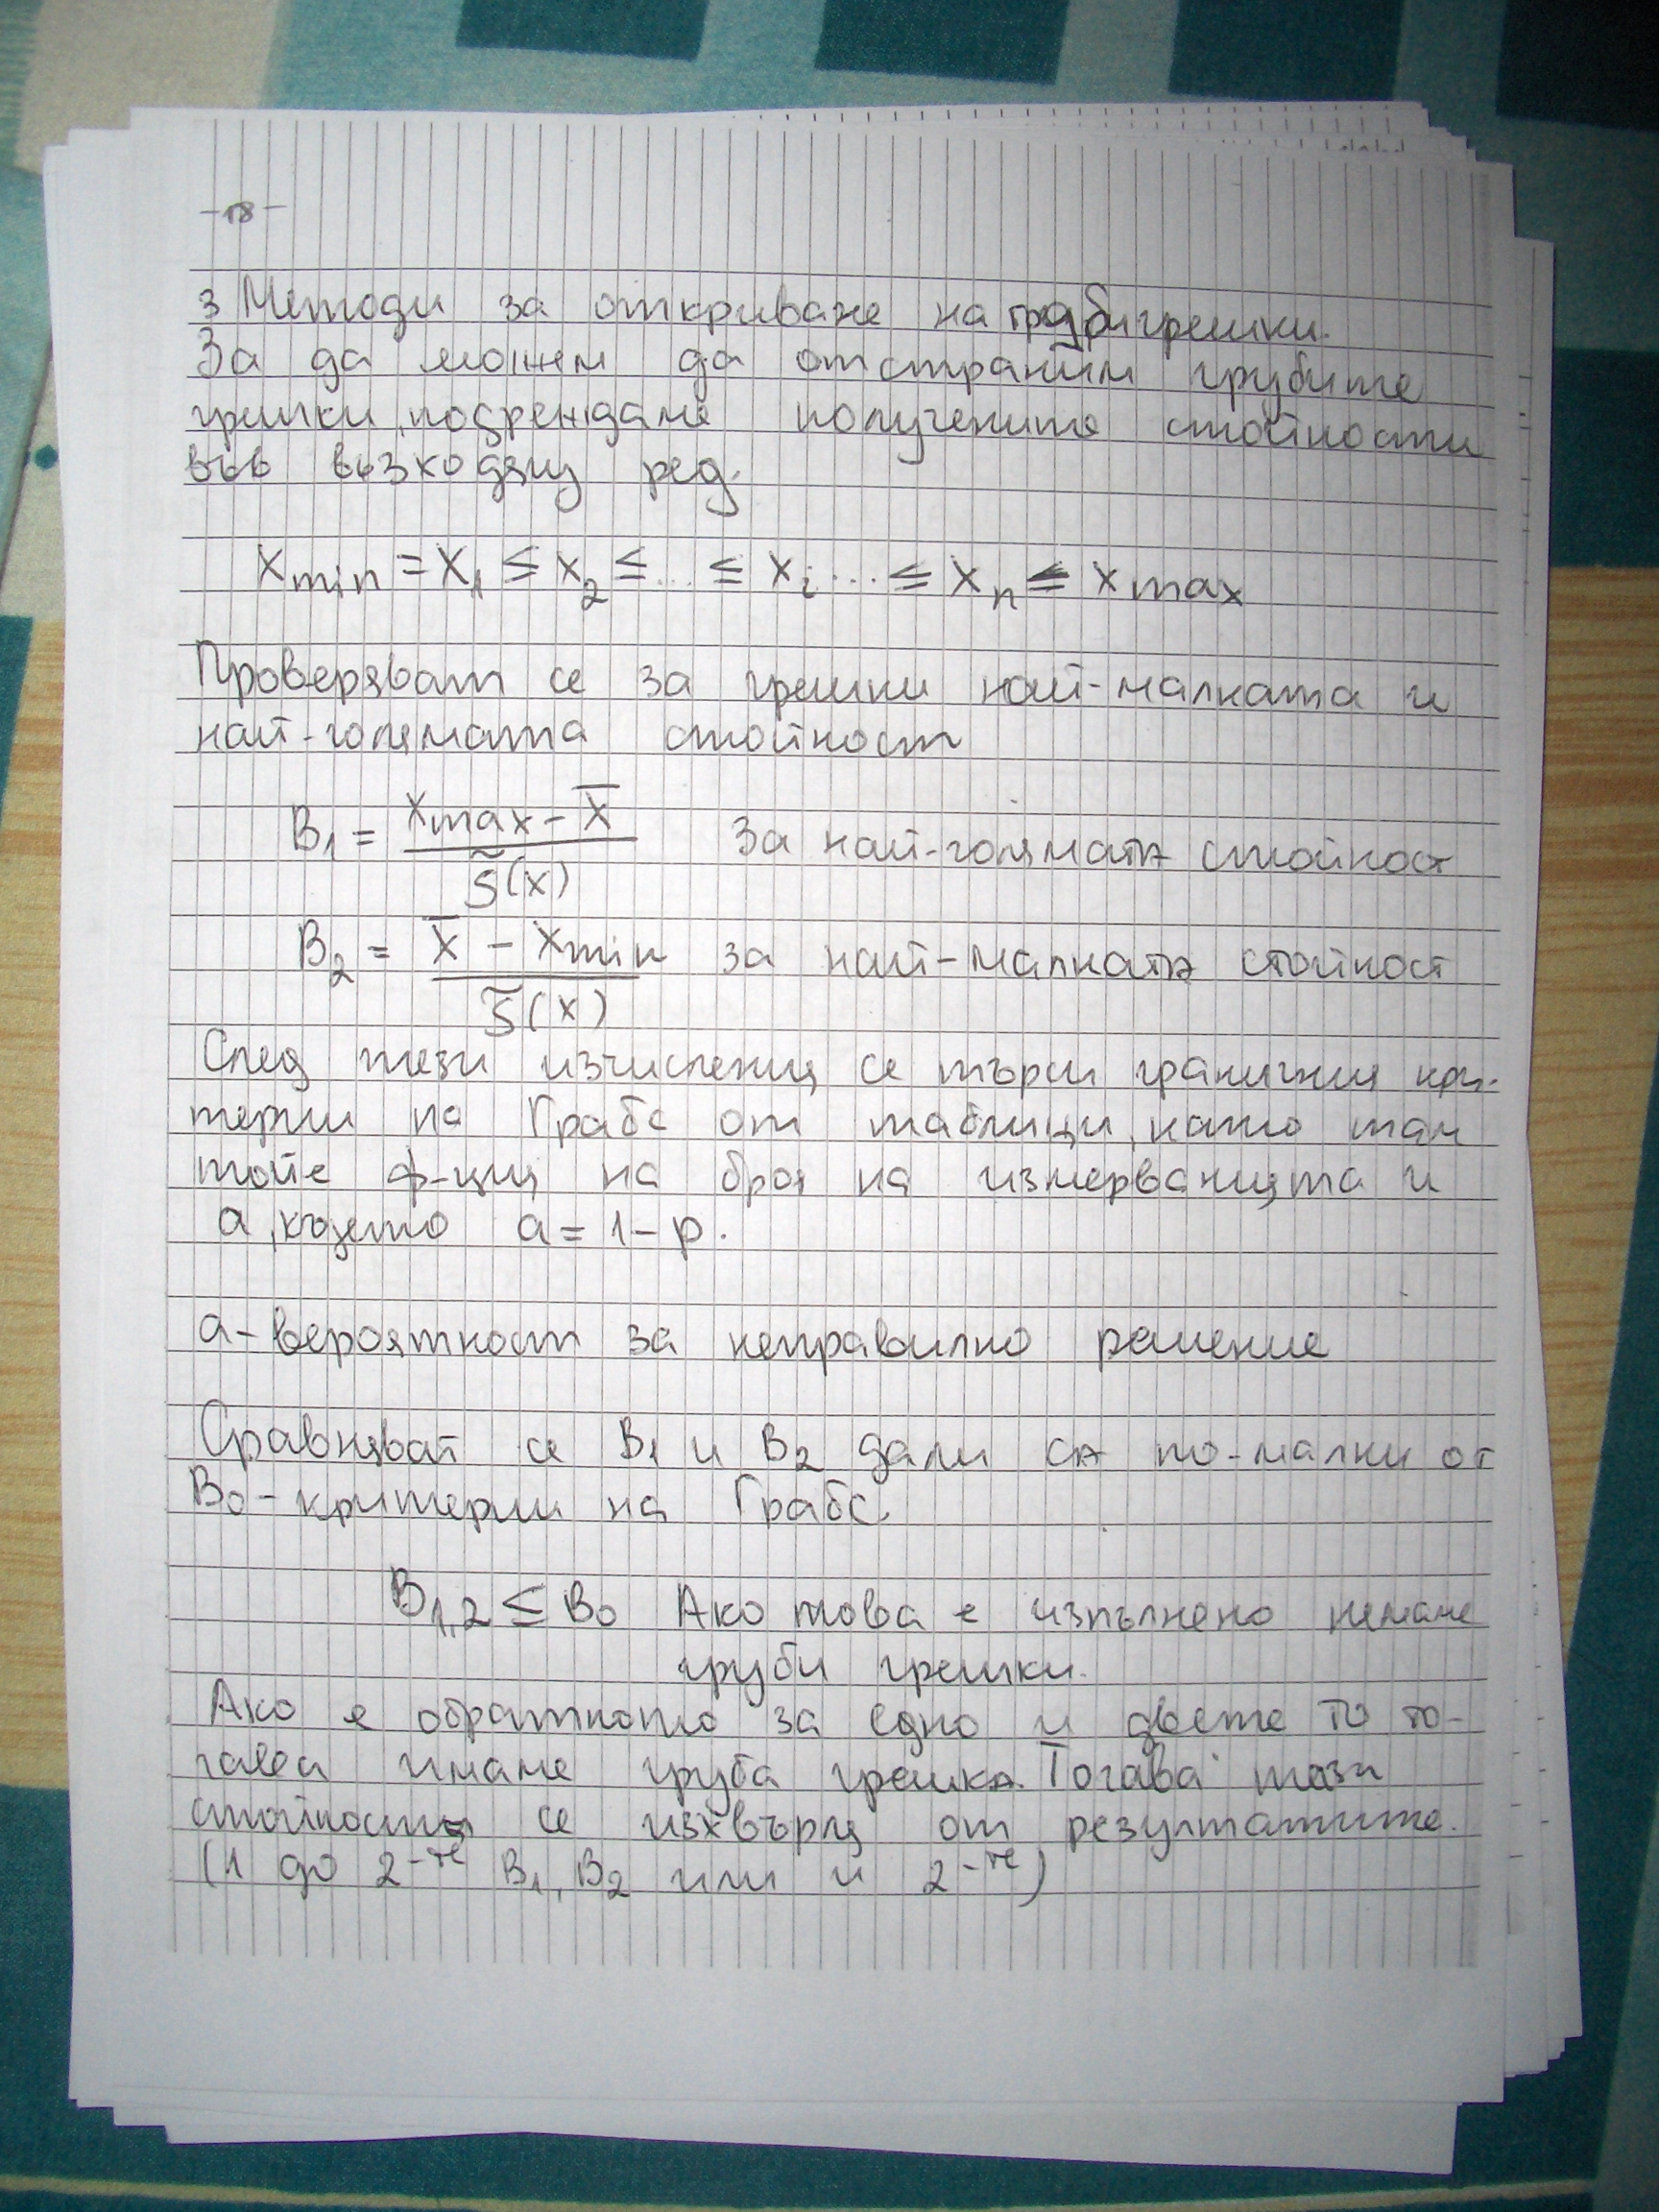 -18-
3 Методи за откриване на груби грешки.
За да можем да отстраним грубите
грешки, подреждаме получените стойности
във възходящ ред.
Xmin = X₁ ≤ X₂ ≤ ... ≤ Xi ... ≤ Xn ≤ Xmax
Проверяват се за грешки най-малката и
най-голямата стойност
B₁ = (Xmax - X̅) / S̃(x) За най-голямата стойност
B₂ = (X̅ - Xmin) / S̃(x) за най-малката стойност
След тези изчисления се търси граничния кри-
терии на Грабс от таблици, като там
той е ф-ция на броя на измерванията и
a, където a = 1 - p.
a - вероятност за неправилно решение
Сравняват се B₁ и B₂ дали са по-малки от
B₀ - критерии на Грабс.
B₁,₂ ≤ B₀ Ако това е изпълнено нямаме
груби грешки.
Ако е обратното за едно и двете то то-
гава имаме груба грешка. Тогава тази
стойност се изхвърля от резултатите.
(1 до 2-те B₁, B₂ или и 2-те)